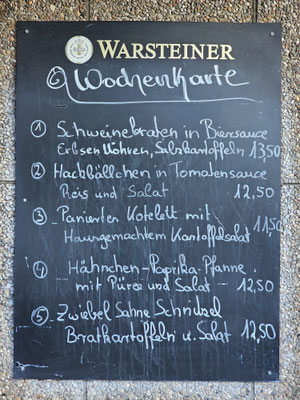 WARSTEINER
Wochenkarte
① Schweinebraten in Biersauce
Erbsen Möhren, Salzkartoffeln 13,50
② Hackbällchen in Tomatensauce
Reis und Salat 12,50
③ Paniertes Kotelett mit 11,50
Hausgemachtem Kartoffelsalat
④ Hähnchen-Paprika-Pfanne
mit Püree und Salat - 12,50
⑤ Zwiebel Sahne Schnitzel
Bratkartoffeln u. Salat 12,50